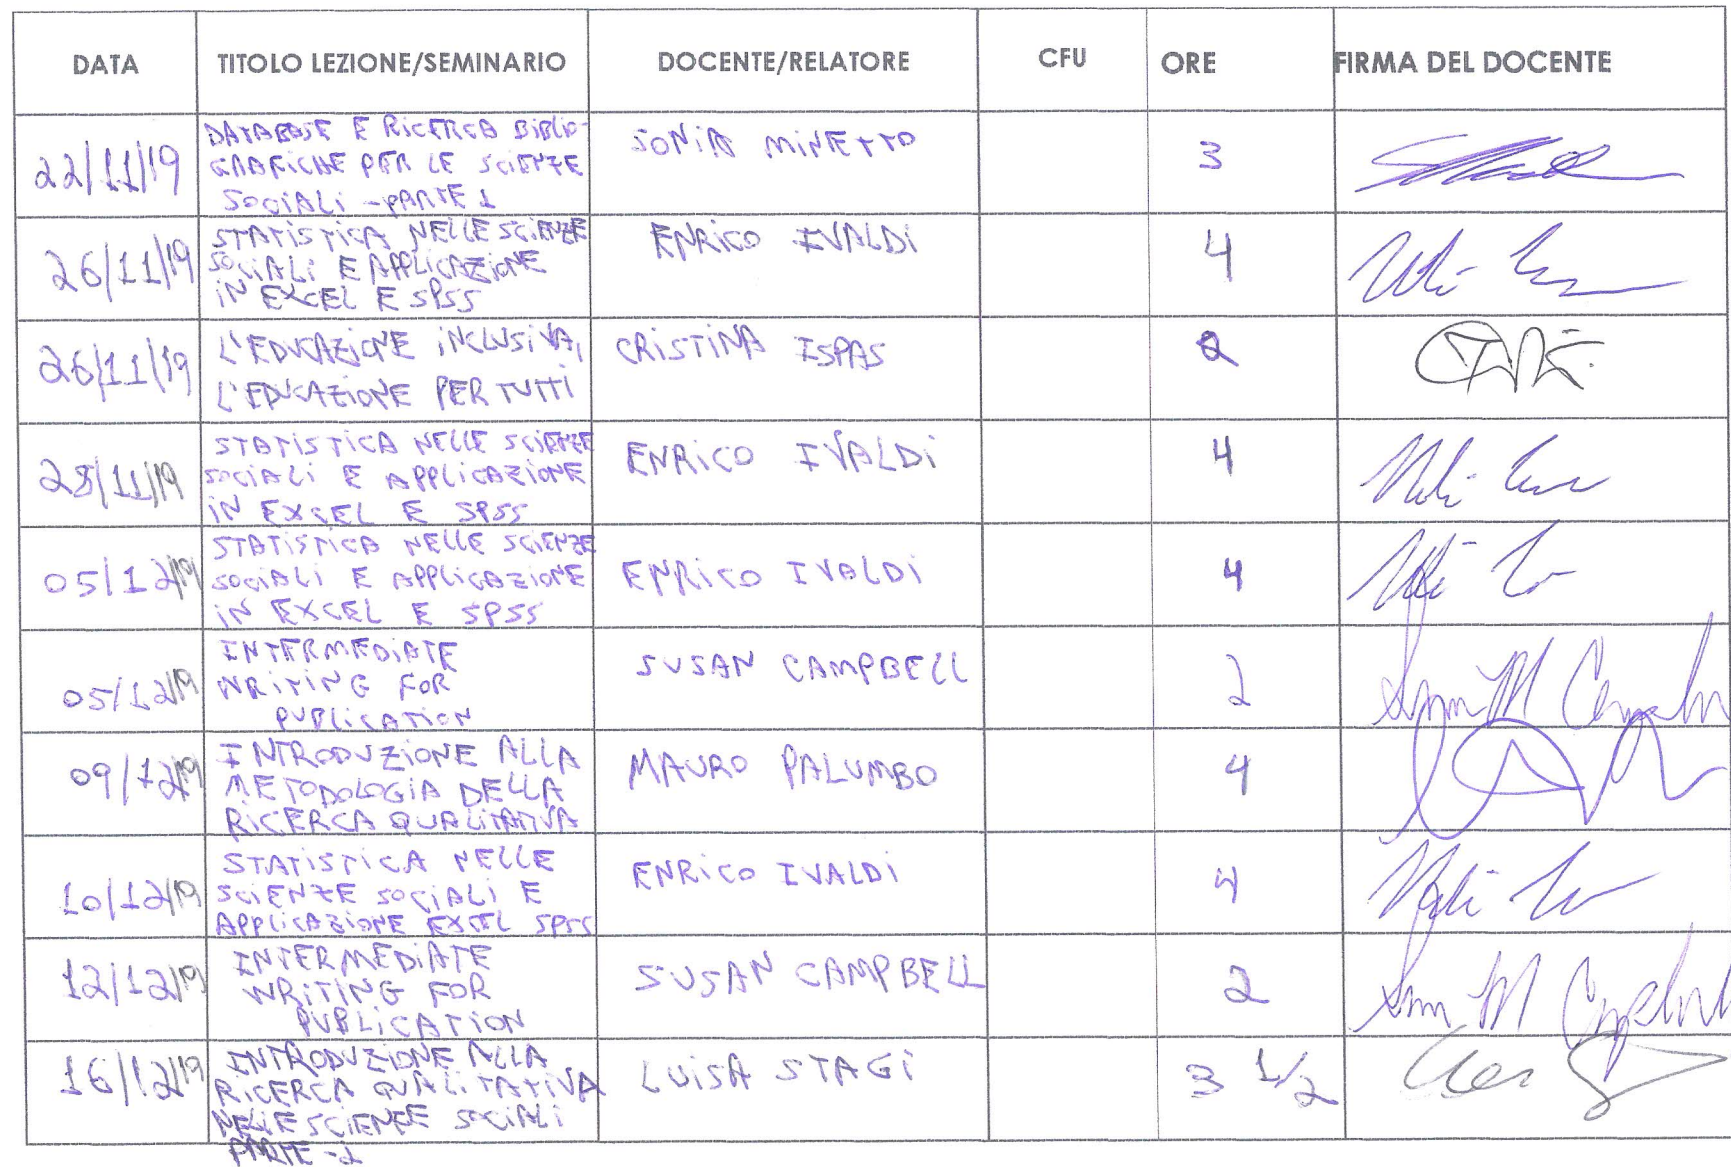 DATA TITOLO LEZIONE/SEMINARIO DOCENTE/RELATORE CFU ORE FIRMA DEL DOCENTE
22/11/19
DATABASE E RICERCA BIBLIO-
GRAFICHE PER LE SCIENZE
SOCIALI - PARTE 1
SONIA MINETTO
3
26/11/19
STATISTICA NELLE SCIENZE
SOCIALI E APPLICAZIONE
IN EXCEL E SPSS
ENRICO IVALDI
4
26/11/19
L'EDUCAZIONE INCLUSIVA,
L'EDUCAZIONE PER TUTTI
CRISTINA ISPAS
2
28/11/19
STATISTICA NELLE SCIENZE
SOCIALI E APPLICAZIONE
IN EXCEL E SPSS
ENRICO IVALDI
4
05/12/19
STATISTICA NELLE SCIENZE
SOCIALI E APPLICAZIONE
IN EXCEL E SPSS
ENRICO IVALDI
4
05/12/19
INTERMEDIATE
WRITING FOR
PUBLICATION
SUSAN CAMPBELL
2
09/12/19
INTRODUZIONE ALLA
METODOLOGIA DELLA
RICERCA QUALITATIVA
MAURO PALUMBO
4
10/12/19
STATISTICA NELLE
SCIENZE SOCIALI E
APPLICAZIONE EXCEL SPSS
ENRICO IVALDI
4
12/12/19
INTERMEDIATE
WRITING FOR
PUBLICATION
SUSAN CAMPBELL
2
16/12/19
INTRODUZIONE ALLA
RICERCA QUALITATIVA
NELLE SCIENZE SOCIALI
PARTE -1
LUISA STAGI
3 1/2